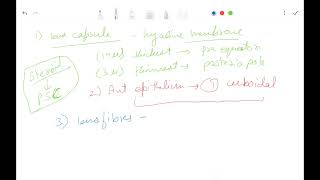 1) Lens capsule - hyaline membrane
(14μ) thickest → pre equatorial
(3μ) thinnest → posterior pole
Steroid
↓
PSC
2) Ant epithelium → ① cuboidal
3) lens fibres -